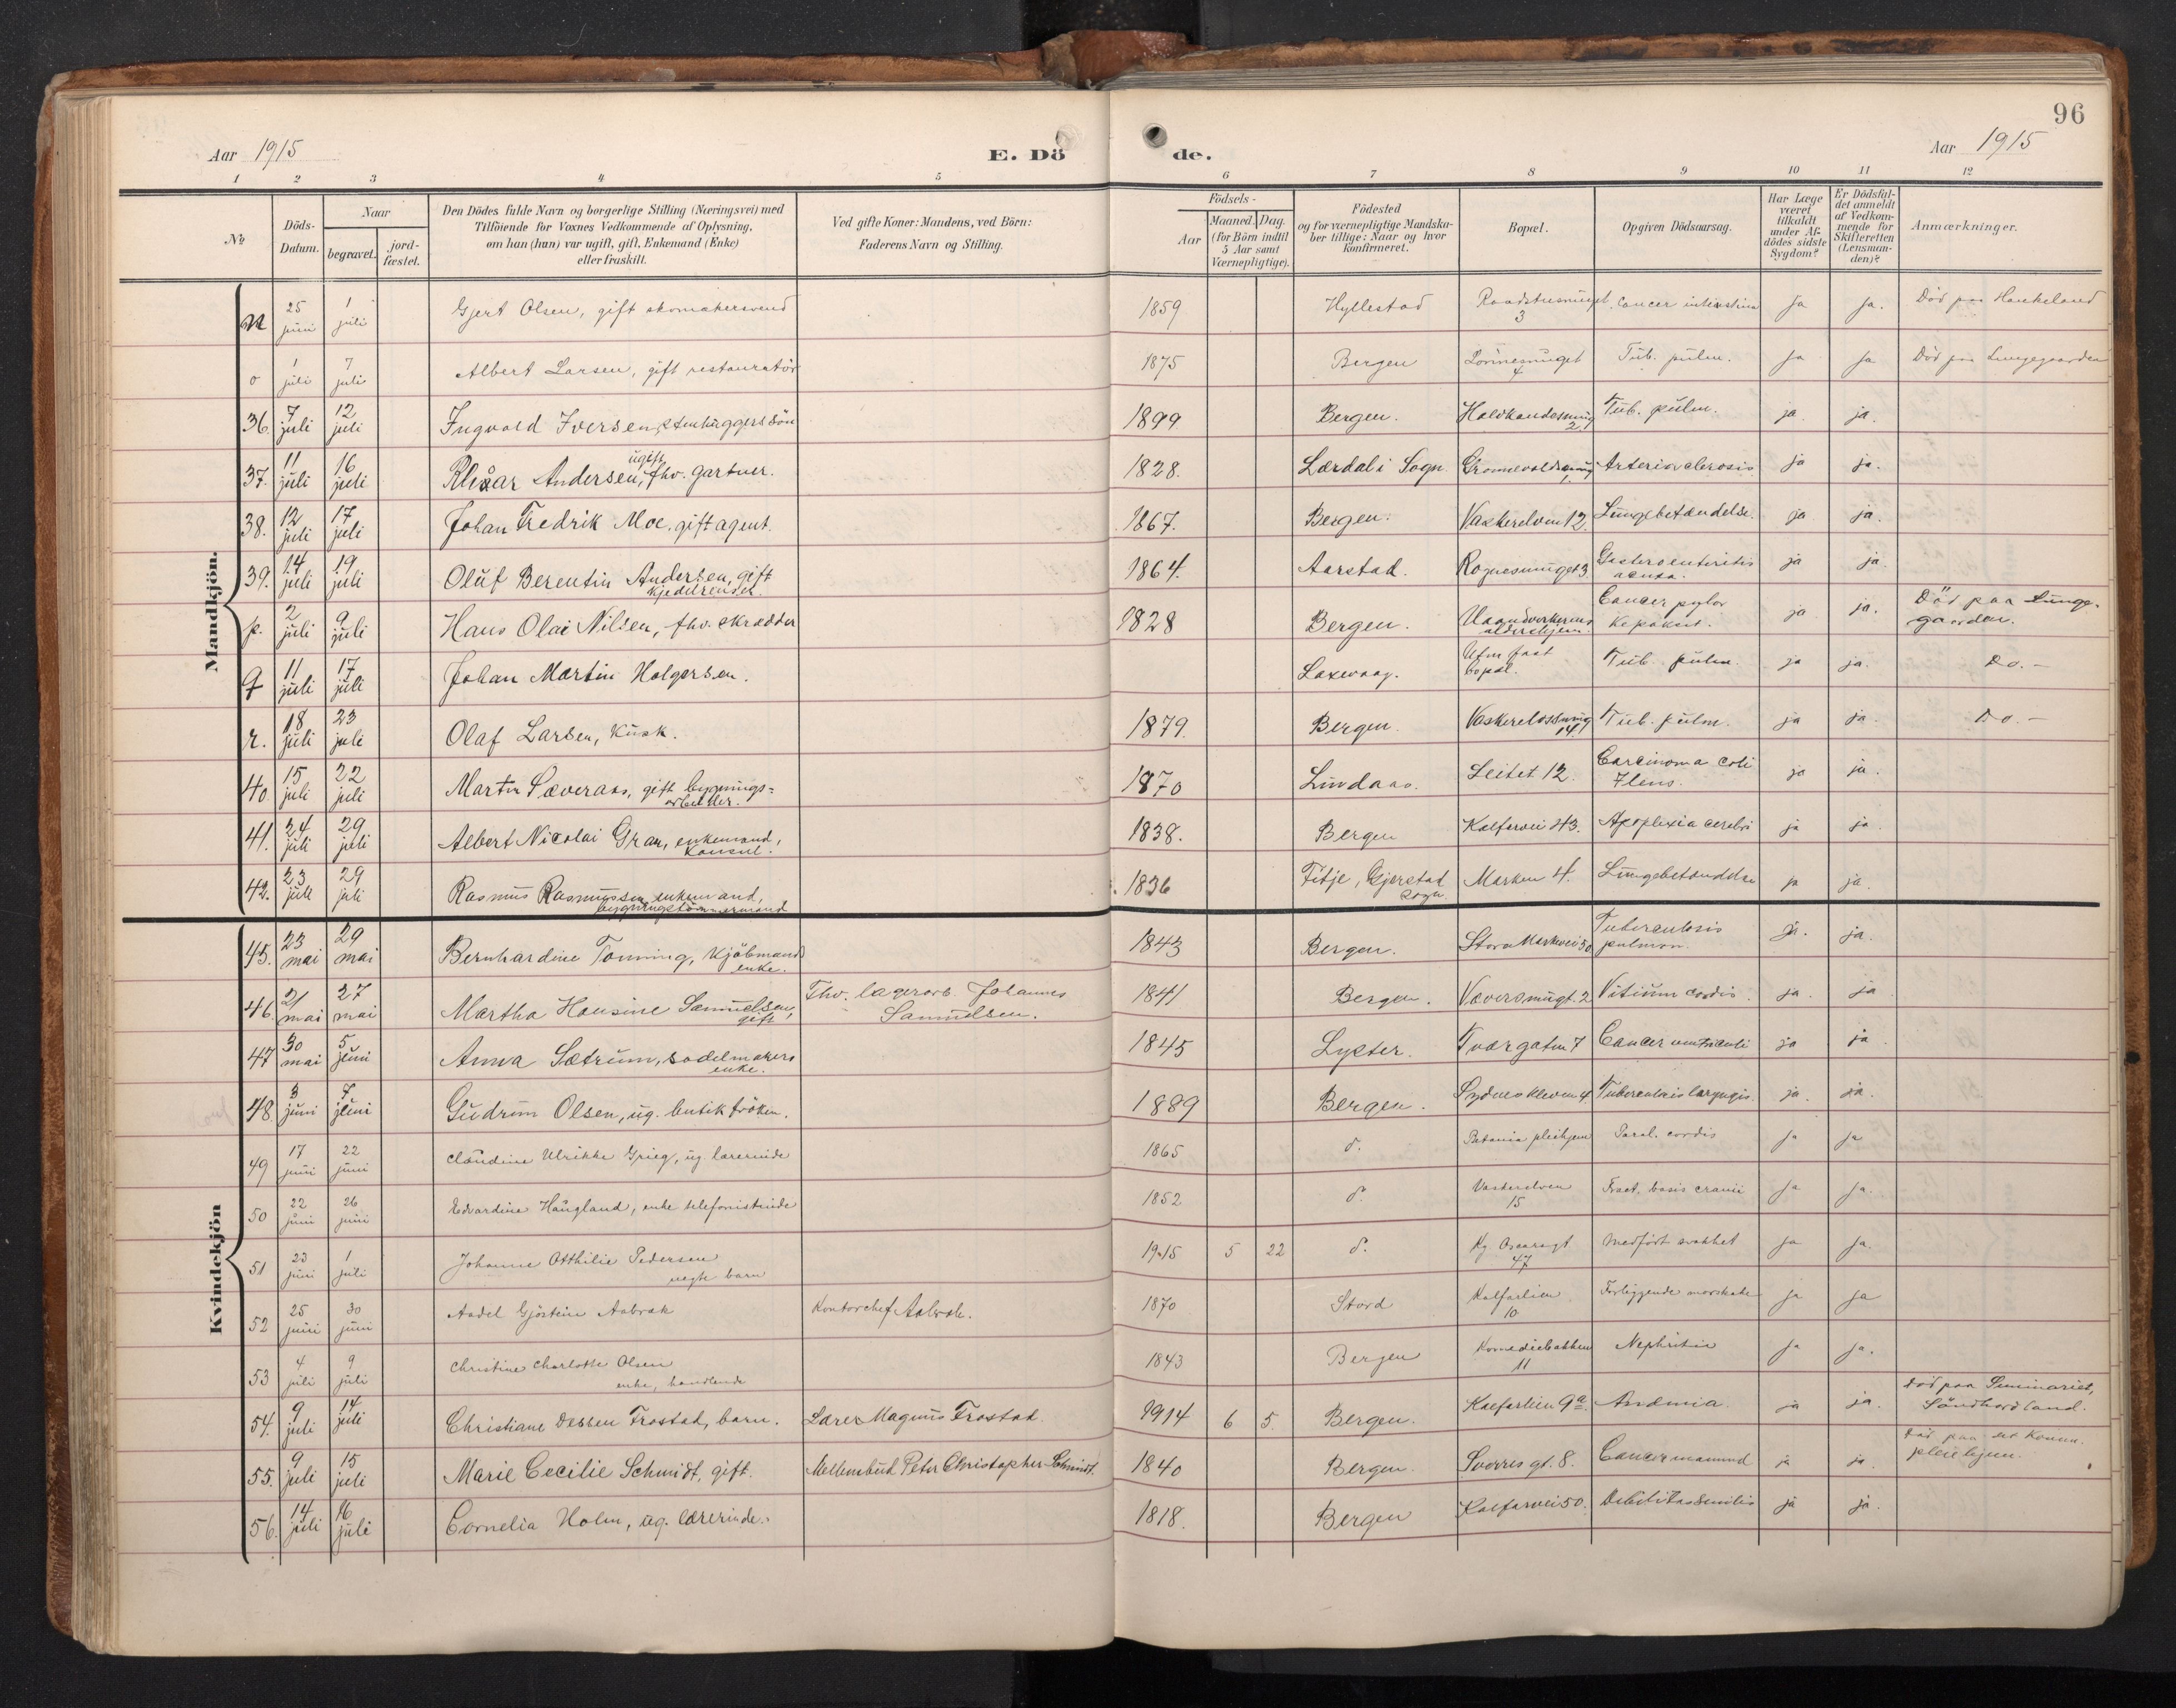 96
Aar 1915
E. Dö de.
Aar 1915
1 2 3 4 5 6 7 8 9 10 11 12
№
Döds-Datum.
Naar
begravet.
jord-fæstet.
Den Dödes fulde Navn og borgerlige Stilling (Næringsvei) med
Tilföiende for Voxnes Vedkommende af Oplysning,
om han (hun) var ugift, gift, Enkemand (Enke)
eller fraskilt.
Ved gifte Koner: Mandens, ved Börn:
Faderens Navn og Stilling.
Födsels-
Aar
Maaned. Dag.
(for Börn indtil
5 Aar samt
Værnepligtige).
Födested
og for værnepligtige Mandska-
ber tillige: Naar og hvor
konfirmeret.
Bopæl.
Opgiven Dödsaarsag.
Har Læge
været
tilkaldt
under Af-
dödes sidste
Sygdom?
Er Dödsfal-
det anmeldt
af Vedkom-
mende for
Skifteretten
(Lensman-
den)?
Anmærkninger.
Mandkjön.
n 25 juni 1 juli Gjert Olsen, gift skomakersvend 1859 Hyllestad 3 cancer intestina ja ja. Död paa Haukeland
o 1 juli 7 juli Albert Larsen, gift restauratör 1875 Bergen 4 Tub. pulm. ja ja Död paa Lungegaarden
36. 7 juli 12 juli Ingvald Iversen, stenhuggerssön 1899 Bergen. 2 Tub. pulm. ja. ja.
37. 11 juli 16 juli Andersen, ugift, fhv. gartner. 1828. Lærdal i Sogn. Arteriosclerosis ja ja.
38. 12 juli 17 juli Johan Fredrik Moe, gift agent. 1867. Bergen. Vaskerelven 12. Lungebetændelse. ja ja.
39. 14 juli 19 juli Oluf Berentin Andersen, gift kjedelrenser. 1864. Aarstad. Rognesmuget 3 Gastroenteritis acuta. ja ja.
p. 2 juli 9 juli Hans Olai Nilsen, fhv. skrædder 1828 Bergen. Haandverkernes aldershjem. Cancer pylor ja ja. Död paa Lunge-
gaarden.
q 11 juli 17 juli Johan Martin Holgersen. Laxevaag. Uten fast bopæl. Tub. pulm. ja ja. Do. -
r. 18 juli 23 juli Olaf Larsen, kusk. 1879. Bergen 14. Tub. pulm. ja ja. Do. -
40. 15 juli 22 juli Martin Sæveraas, gift bygnings=
arbeider. 1870 Lindaas. Leitet 12. Carcinoma coli Ileus. ja ja.
41. 24 juli 29 juli Albert Nicolai Gran, enkemand,
konsul. 1838. Bergen Kalfarvei 43. Apoplexia cerebri ja ja
42. 23 juli 29 juli Rasmus Rasmussen, enkemand,
bygningstömmermand 1836 Fitje, Gjerstad sogn Marken 4. Lungebetændelse ja ja.
Kvindekjön
45. 23 mai 29 mai Bernhardine Tonning, kjöbmands
enke. 1843 Bergen. Store Markevei 50 Tuberculosis pulmon. ja. ja.
46. 21 mai 27 mai Martha Hansine Samuelsen,
gift Fhv. lagerarb. Johannes
Samuelsen. 1841 Bergen. Væversmugt. 2 Vitium cordis. ja. ja
47 30 mai 5 juni Anna Sætrum, sadelmakers
enke. 1845 Lyster. Tværgaten 7 Cancer ventriculi ja ja
48. 3 juni 7 juni Gudrun Olsen, ug. butikfröken. 1889 Bergen. Sydneskleven 4 Tuberculosis laryngis. ja. ja.
49 17 juni 22 juni Claudine Ulrikke Grieg, ug. lærerinde 1865 d. Betania pleiehjem Paral. cordis ja ja
50 22 juni 26 juni Edvardine Haugland, enke telefonistinde 1852 d. Vaskerelven
15 Fract. basis cranii ja ja.
51 23 juni 1 juli Johanne Otthilie Pedersen
uegte barn 1915 5 22 d. Kg. Oscarsgt
47 Medfört svakhet ja ja.
52 25 juni 30 juni Aadel Gjöstein Aabrek Kontorchef Aabrek. 1870 Stord Kalfarlien
10 Forliggende morkake ja ja
53 4 juli 9 juli Christine Charlotte Olsen
enke, handlende 1843 Bergen Komediebakken
11 Nephritis ja ja.
54. 9 juli 14 juli Christiane Dessen Frostad, barn. Lærer Magnus Frostad. 1914 6 5 Bergen. Kalfarlien 9a. Anæmia ja ja. Död paa Seminariet,
Söndhordland.
55. 9 juli 15 juli Marie Cecilie Schmidt, gift. Mellembud Peter Christopher Schmidt. 1840 Bergen Sverres gt. 8. Cancer mammæ ja ja. Död paa et Komm.
pleiehjem.
56. 14 juli 16 juli Cornelia Holm, ug. lærerinde. 1818. Bergen Kalfarvei 50. Debilitas senilis ja ja.